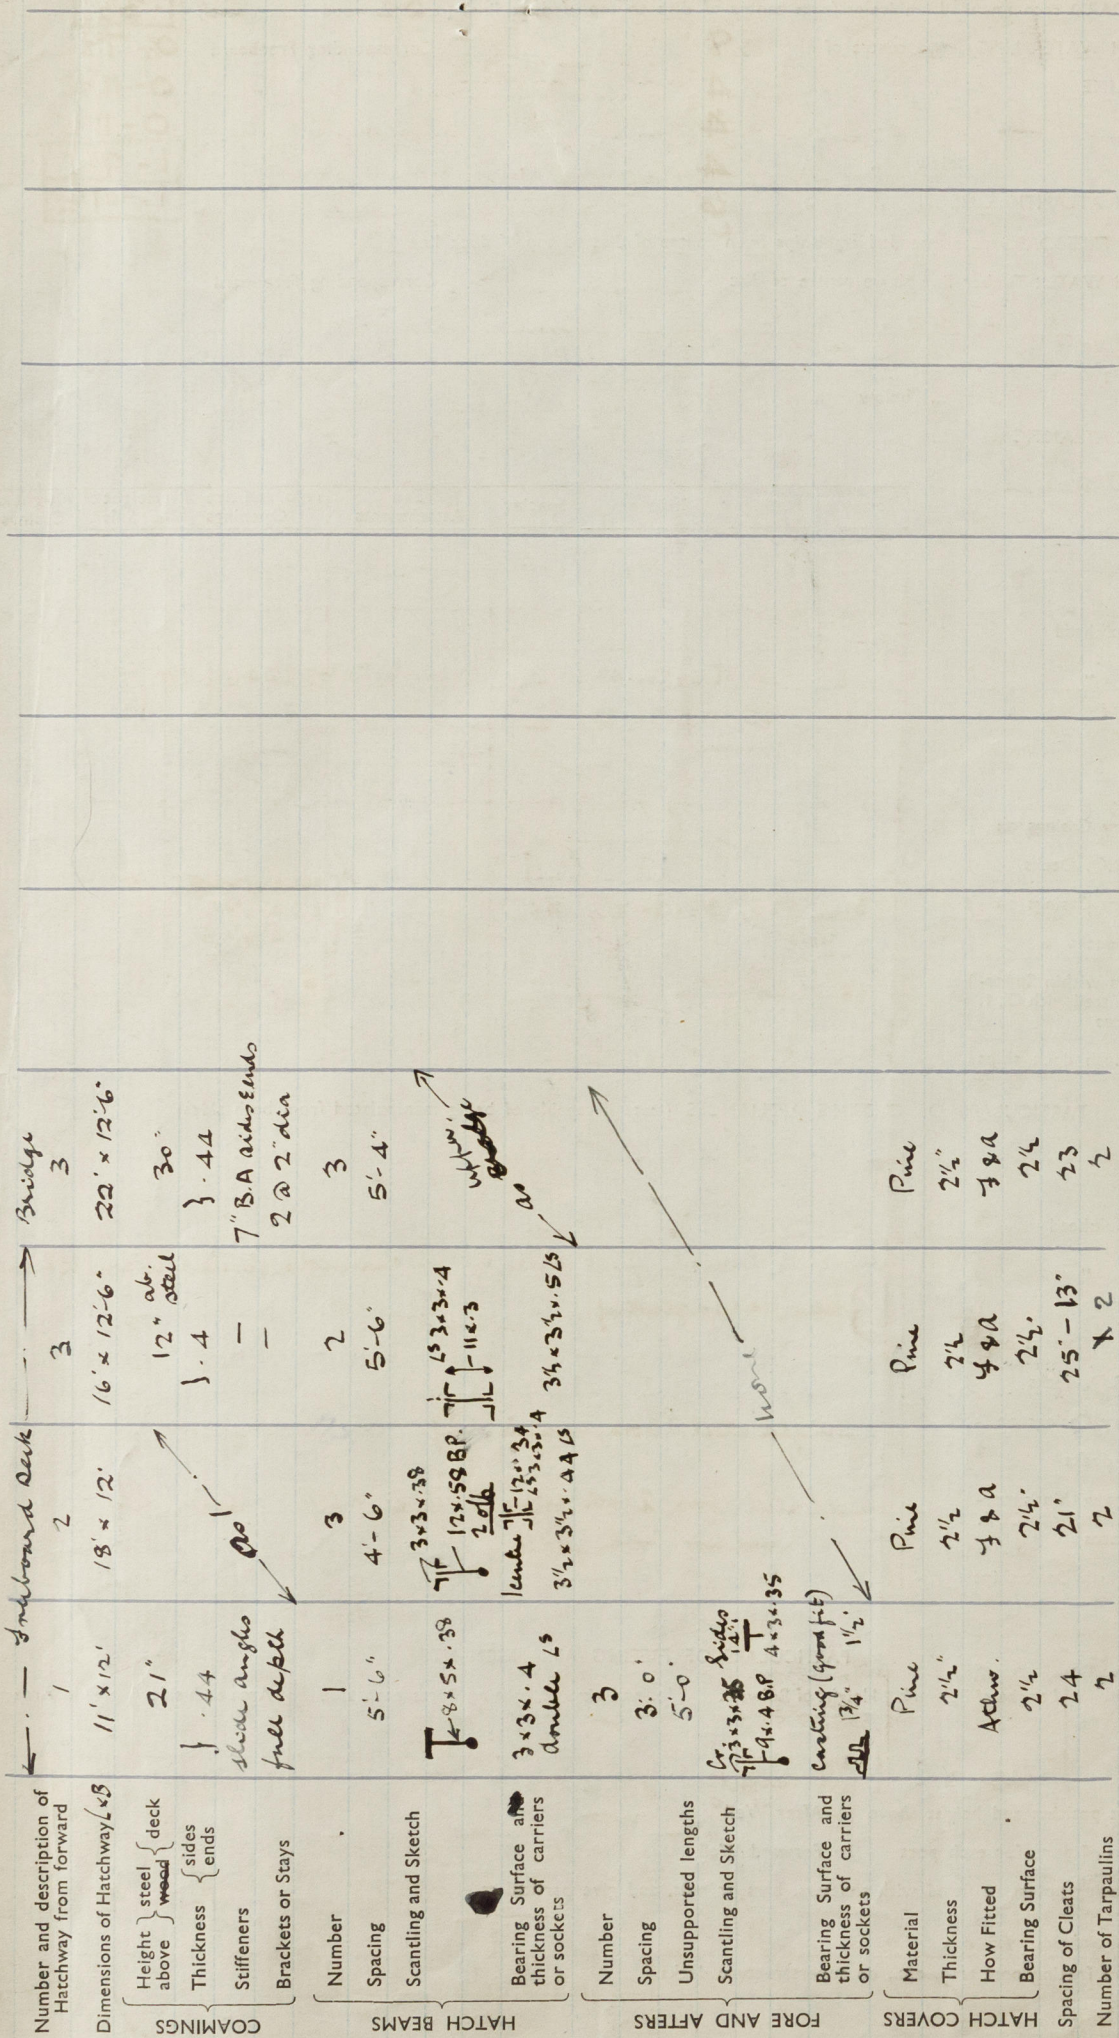 Number and description of Hatchway from forward
← — Freeboard Deck — →
Bridge
1
2
3
3
Dimensions of Hatchway L×B
11' × 12'
18' × 12'
16' × 12'-6"
22' × 12'-6"
COAMINGS
Height above { steel wood } deck
21"
12" ab. steel
30"
Thickness { sides ends
} .44
} .4
} .44
Stiffeners
slide angles
as
—
7" B.A sides & ends
Brackets or Stays
full depth
—
2 @ 2" dia
HATCH BEAMS
Number
1
3
2
3
Spacing
5'-6"
4'-6"
5'-6"
5'-4"
Scantling and Sketch
8×5×.38
3×3×.38
12×.58 B.P.
2 off
1 centre
12×.34
Ls 3×3×.4
Ls 3×3×.4
11×.3
as
Bearing Surface and thickness of carriers or sockets
3×3×.4
double Ls
3½×3½×.44 Ls
3½×3½×.5 Ls
FORE AND AFTERS
Number
3
none
Spacing
3'.0"
Unsupported lengths
5'-0"
Scantling and Sketch
Cr.
3×3×.35
9×.4 B.P
Sides
4×3×.35
Bearing Surface and thickness of carriers or sockets
Casting (good fit)
1¾"
1½"
HATCH COVERS
Material
Pine
Pine
Pine
Pine
Thickness
2½"
2½
2½
2½"
How Fitted
Athw.
F & A
F & A
F & A
Bearing Surface
2½
2½"
2½"
2½
Spacing of Cleats
24
21"
25"-13"
23
Number of Tarpaulins
2
2
× 2
2